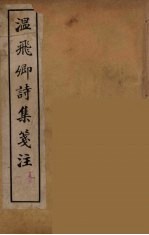 溫飛卿詩集箋注